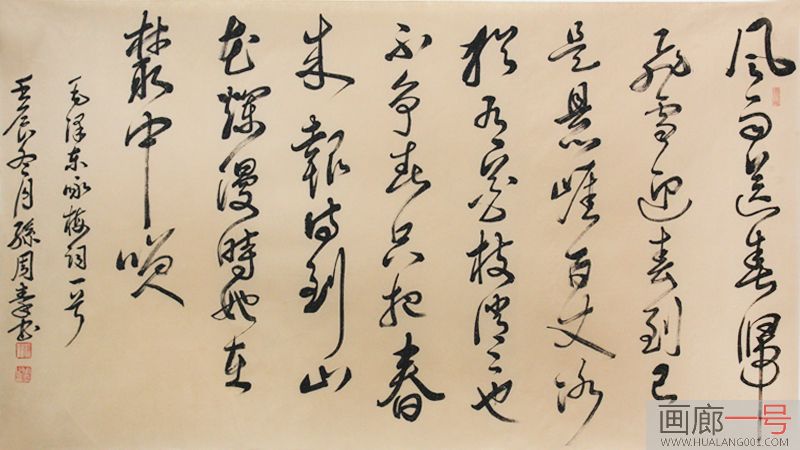 风雨送春归
飞雪迎春到已
是悬崖百丈冰
犹有花枝俏俏也
不争春只把春
来報待到山
花爛漫時她在
叢中咲
毛泽东咏梅词一首
壬辰冬月孫周书
画廊一号
WWW.HUALANG001.COM